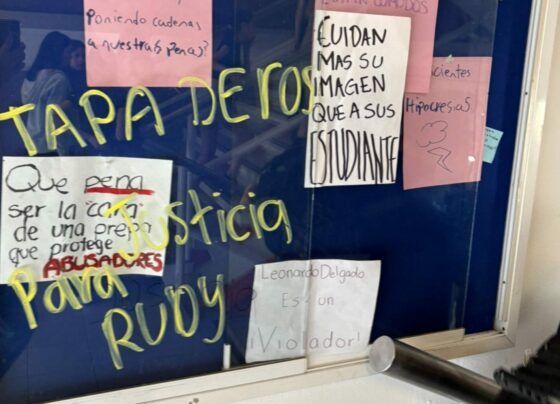 Poniendo cadenas
a nuestras penas?
CUIDAN
MAS SU
IMAGEN
QUE A SUS
ESTUDIANTE
Hipocresias
TAPADEROS
Que pena
ser la "cara"
de una prepa
que protege
ABUSADORES
Justicia
Para
RUDY
Leonardo Delgado
Es un
¡Violador!